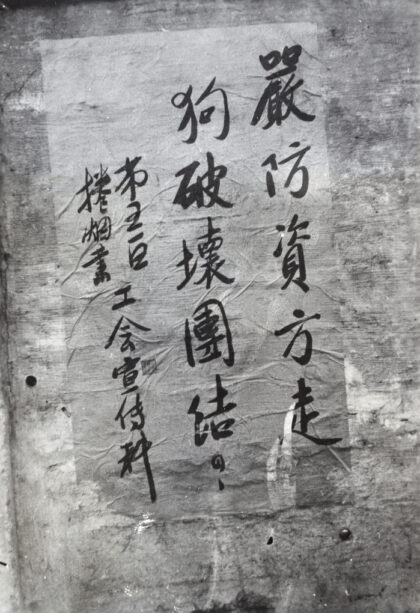 嚴防資方走
狗破壞團結！
第五区
捲烟業
工会宣傳科